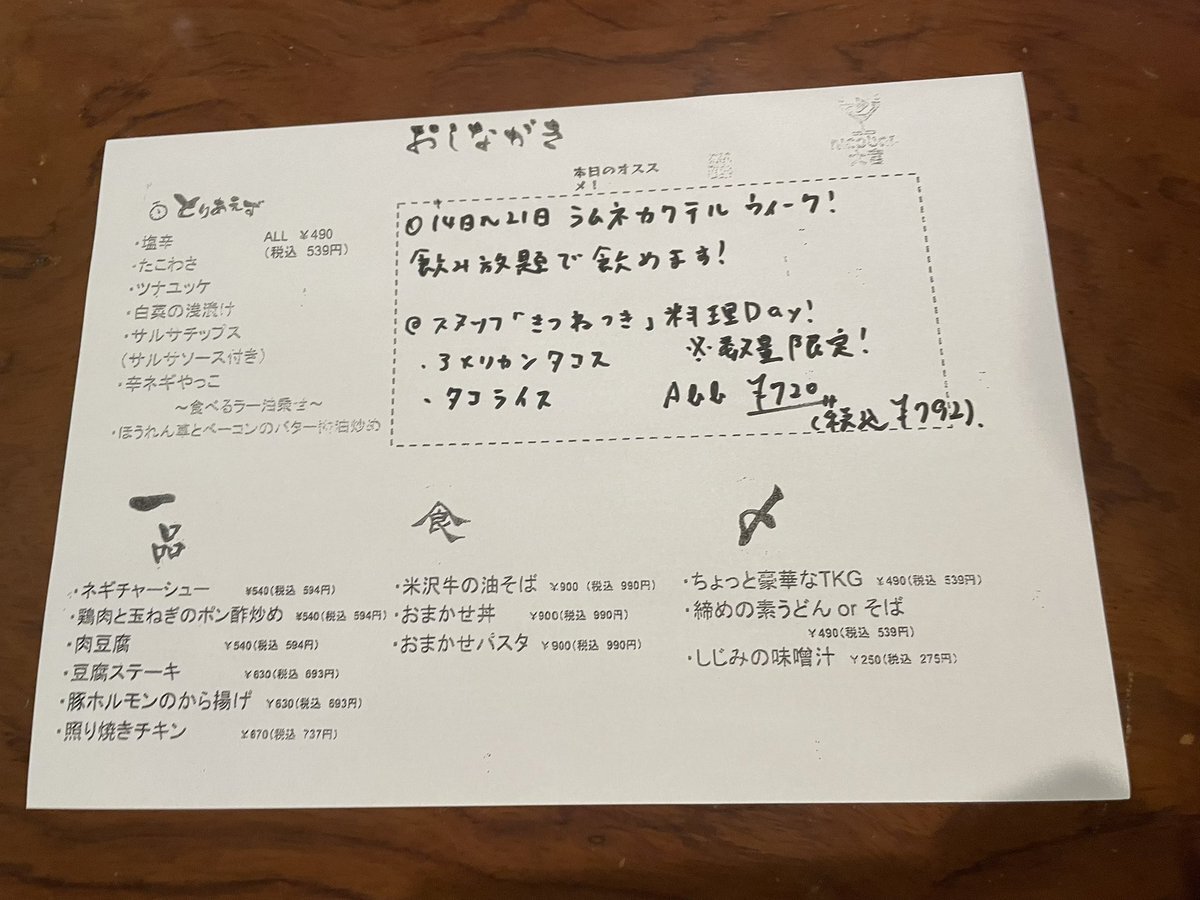 おしながき
nicobar
大宮
本日のオスス
メ!
とりあえず
・塩辛
ALL ¥490
(税込 539円)
・たこわさ
・ツナユッケ
・白菜の浅漬け
・サルサチップス
(サルサソース付き)
・辛ネギやっこ
～食べるラー油乗せ～
・ほうれん草とベーコンのバター醤油炒め
◎14日～21日 ラムネカクテル ウィーク!
飲み放題で飲めます!
◎スタッフ「きつねつき」料理Day!
・アメリカンタコス ※数量限定!
・タコライス All ¥720
(税込¥792).
一品
・ネギチャーシュー ¥540(税込 594円)
・鶏肉と玉ねぎのポン酢炒め ¥540(税込 594円)
・肉豆腐 ¥540(税込 594円)
・豆腐ステーキ ¥630(税込 693円)
・豚ホルモンのから揚げ ¥630(税込 693円)
・照り焼きチキン ¥670(税込 737円)
食
・米沢牛の油そば ¥900 (税込 990円)
・おまかせ丼 ¥900(税込 990円)
・おまかせパスタ ¥900(税込 990円)
〆
・ちょっと豪華なTKG ¥490(税込 539円)
・締めの素うどん or そば
¥490(税込 539円)
・しじみの味噌汁 ¥250(税込 275円)